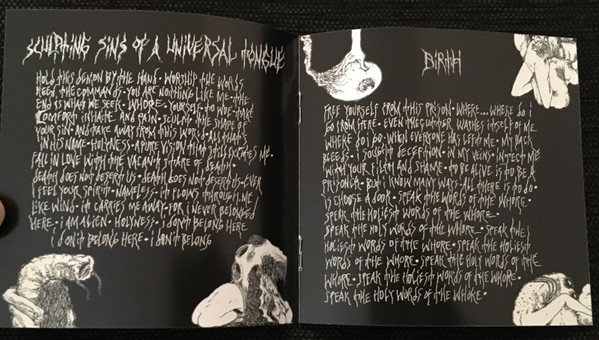 SCULPTING SINS OF A UNIVERSAL TONGUE
HOLD THIS DEMON BY THE HAND • WORSHIP THE WORDS
NEED THE COMMANDS • YOU ARE NOTHING LIKE ME • THE
END IS WHAT WE SEEK • WHORE YOURSELF TO WAR • TAKE
COMFORT, INSTATE AND PAIN • SCULPT THE SHAPE OF
YOUR SIN • AND TAKE AWAY FROM THIS WORLD • ALL THAT'S
IN HIS NAME • HOLYNESS • A PURE VISION THAT STILL EXCITES ME •
FALL IN LOVE WITH THE VACANT STARE OF DEATH •
DEATH DOES NOT DESERT US • DEATH DOES NOT DESERT US • EVER
I FEEL YOUR SPIRIT • NAMELESS • IT FLOWS THROUGH ME
LIKE WIND • IT CARRIES ME AWAY • FOR I NEVER BELONGED
HERE • I AM ALIEN • HOLYNESS • I DON'T BELONG HERE
I DON'T BELONG HERE • I DON'T BELONG
BIRTH
FREE YOURSELF FROM THIS PRISON • WHERE... WHERE DO I
GO FROM HERE • EVEN THE GUTTER WASHES ITSELF OF ME
WHERE DO I GO WHEN EVERYONE HAS LEFT ME • MY BACK
BLEEDS • I SOUGHT DECEPTION • IN MY VEINS • INFECT ME
WITH YOUR FILTH AND SHAME • TO BE ALIVE IS TO BE A
PRISONER • BUT I KNOW MANY WAYS • ALL THERE IS TO DO
IS CHOOSE A DOOR • SPEAK THE WORDS OF THE WHORE •
SPEAK THE HOLIEST WORDS OF THE WHORE •
SPEAK THE HOLY WORDS OF THE WHORE • SPEAK THE
HOLIEST WORDS OF THE WHORE • SPEAK THE HOLIEST
WORDS OF THE WHORE • SPEAK THE HOLY WORDS OF THE
WHORE • SPEAK THE HOLIEST WORDS OF THE WHORE •
SPEAK THE HOLY WORDS OF THE WHORE •